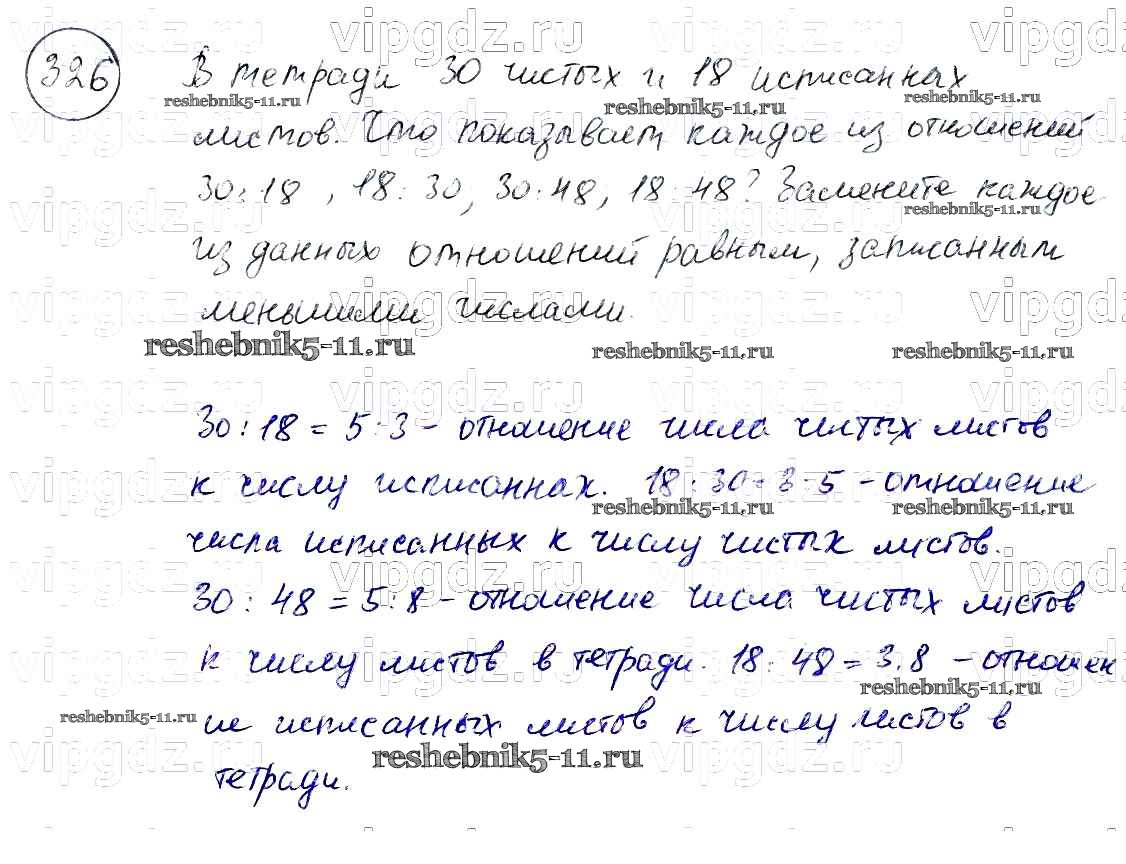 326
В тетради 30 чистых и 18 исписанных
листов. Что показывает каждое из отношений
30:18, 18:30, 30:48, 18:48? Замените каждое
из данных отношений равным, записанным
меньшими числами.
30:18 = 5:3 - отношение числа чистых листов
к числу исписанных. 18:30=3:5 - отношение
числа исписанных к числу чистых листов.
30:48 = 5:8 - отношение числа чистых листов
к числу листов в тетради. 18:48 = 3:8 - отношен
ие исписанных листов к числу листов в
тетради.
vipgdz.ru
reshebnik5-11.ru